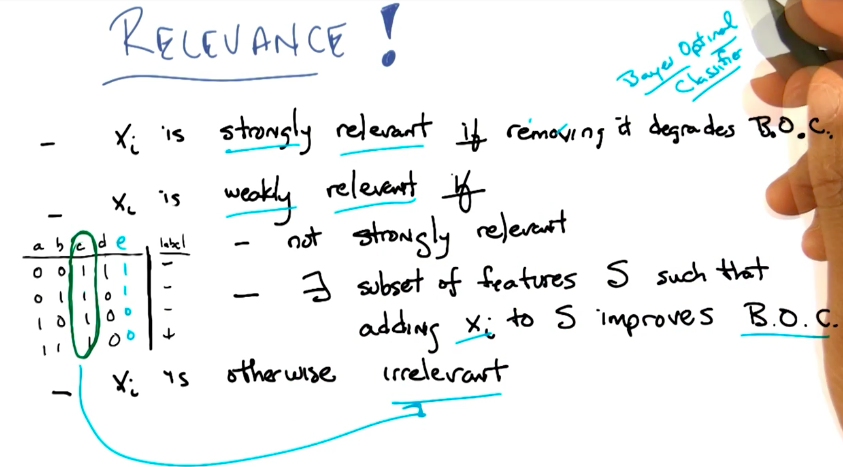 RELEVANCE!
Bayes Optimal
Classifier
- Xi is strongly relevant if removing it degrades B.O.C.
- Xi is weakly relevant if
- not strongly relevant
- ∃ subset of features S such that
adding Xi to S improves B.O.C.
a b c d e | label
0 0 1 1 1 | -
0 1 1 0 1 | -
1 0 1 0 0 | -
1 1 1 0 0 | +
- Xi is otherwise irrelevant